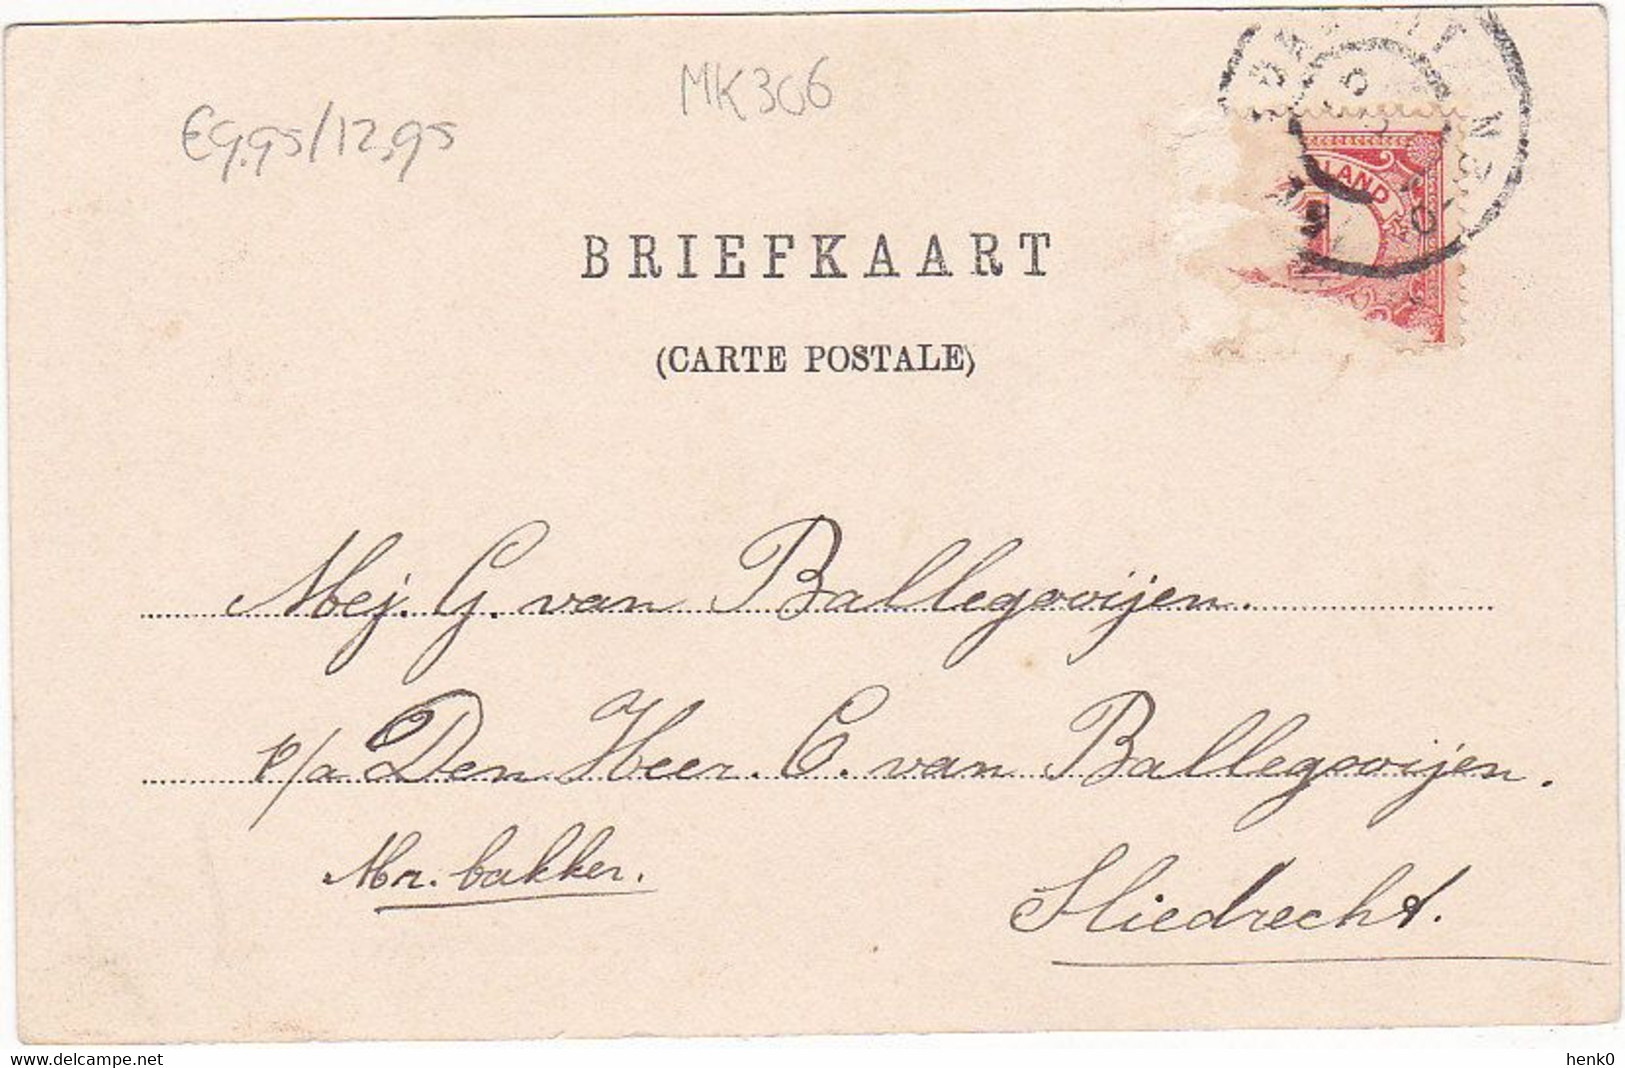 MK306
€9,95/12,95
LAND
BRIEFKAART
(CARTE POSTALE)
Mej. G. van Ballegooijen.
p/a Den Heer. C. van Ballegooijen.
Mr. bakker.
Sliedrecht.
delcampe.net
henk0